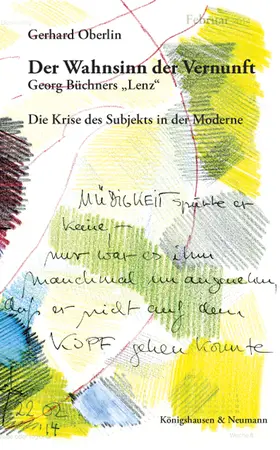 Februar
Gerhard Oberlin
Der Wahnsinn der Vernunft
Georg Büchners „Lenz“
Die Krise des Subjekts in der Moderne
MÜDIGKEIT spürte er
keine,
nur war es ihm
manchmal unangenehm,
daß er nicht auf dem
KOPF gehen konnte
22 02
14
Königshausen & Neumann